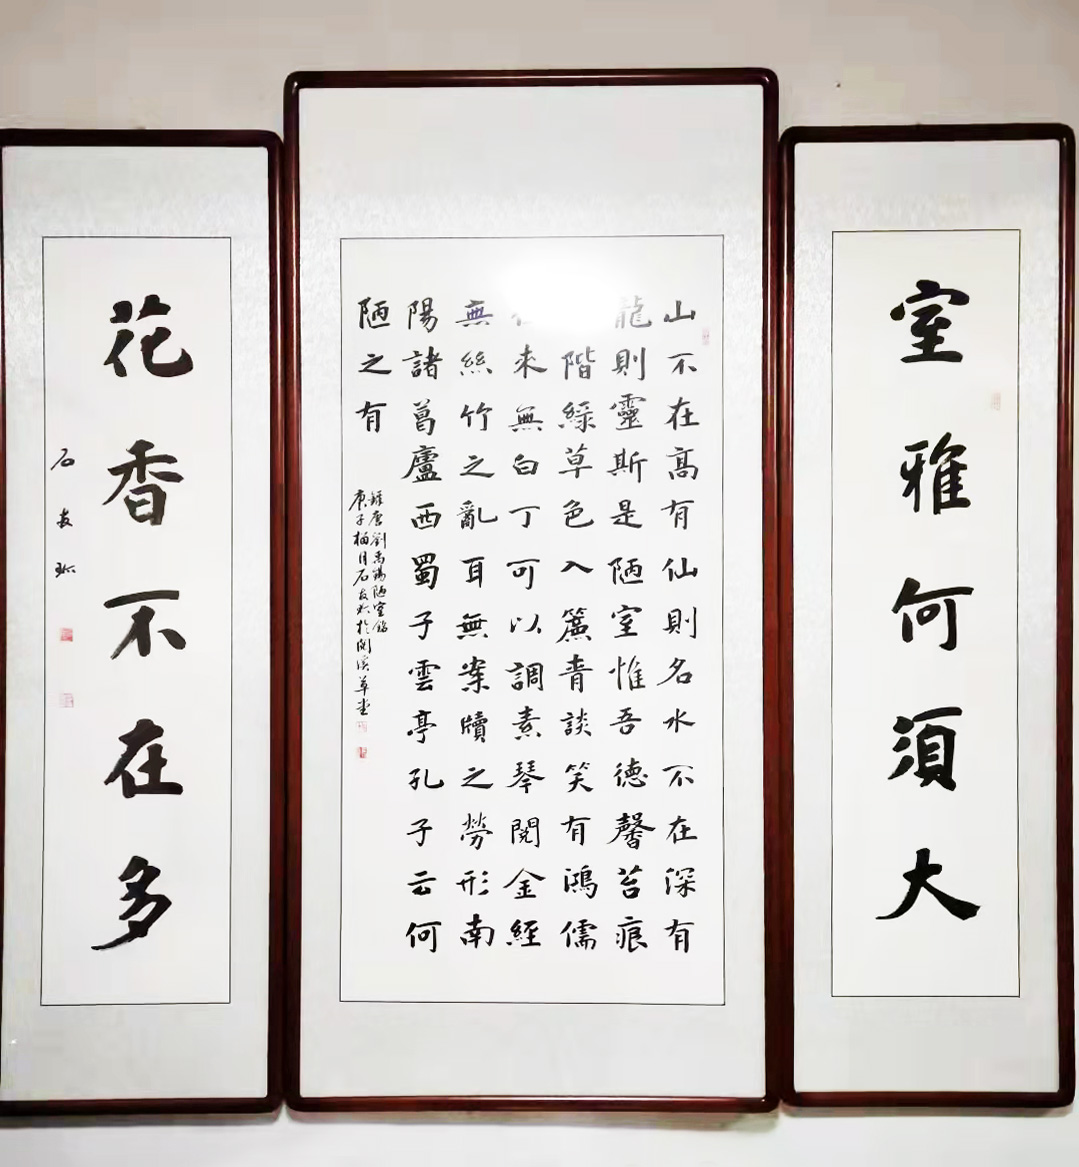 室雅何湏大
山不在髙有仙則名水不在深有
龍則靈斯是陋室惟吾德馨苔痕
階綠草色入簾青談笑有鴻儒
來無白丁可以調素琴閱金經
無絲竹之亂耳無案牘之勞形南
陽諸葛廬西蜀子雲亭孔子云何
陋之有
錄唐劉禹錫陋室銘
庚子柏月石友於閩溪草堂
花香不在多
石友